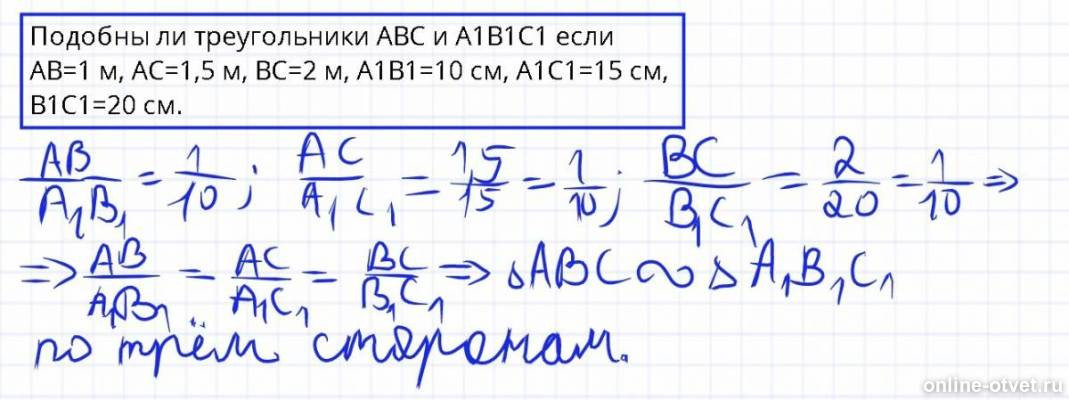 Подобны ли треугольники ABC и A1B1C1 если
AB=1 м, AC=1,5 м, BC=2 м, A1B1=10 см, A1C1=15 см,
B1C1=20 см.
AB/A₁B₁ = 1/10; AC/A₁C₁ = 1,5/15 = 1/10; BC/B₁C₁ = 2/20 = 1/10 ⇒
⇒ AB/A₁B₁ = AC/A₁C₁ = BC/B₁C₁ ⇒ △ABC ∾ △A₁B₁C₁
по трём сторонам.
online-otvet.ru